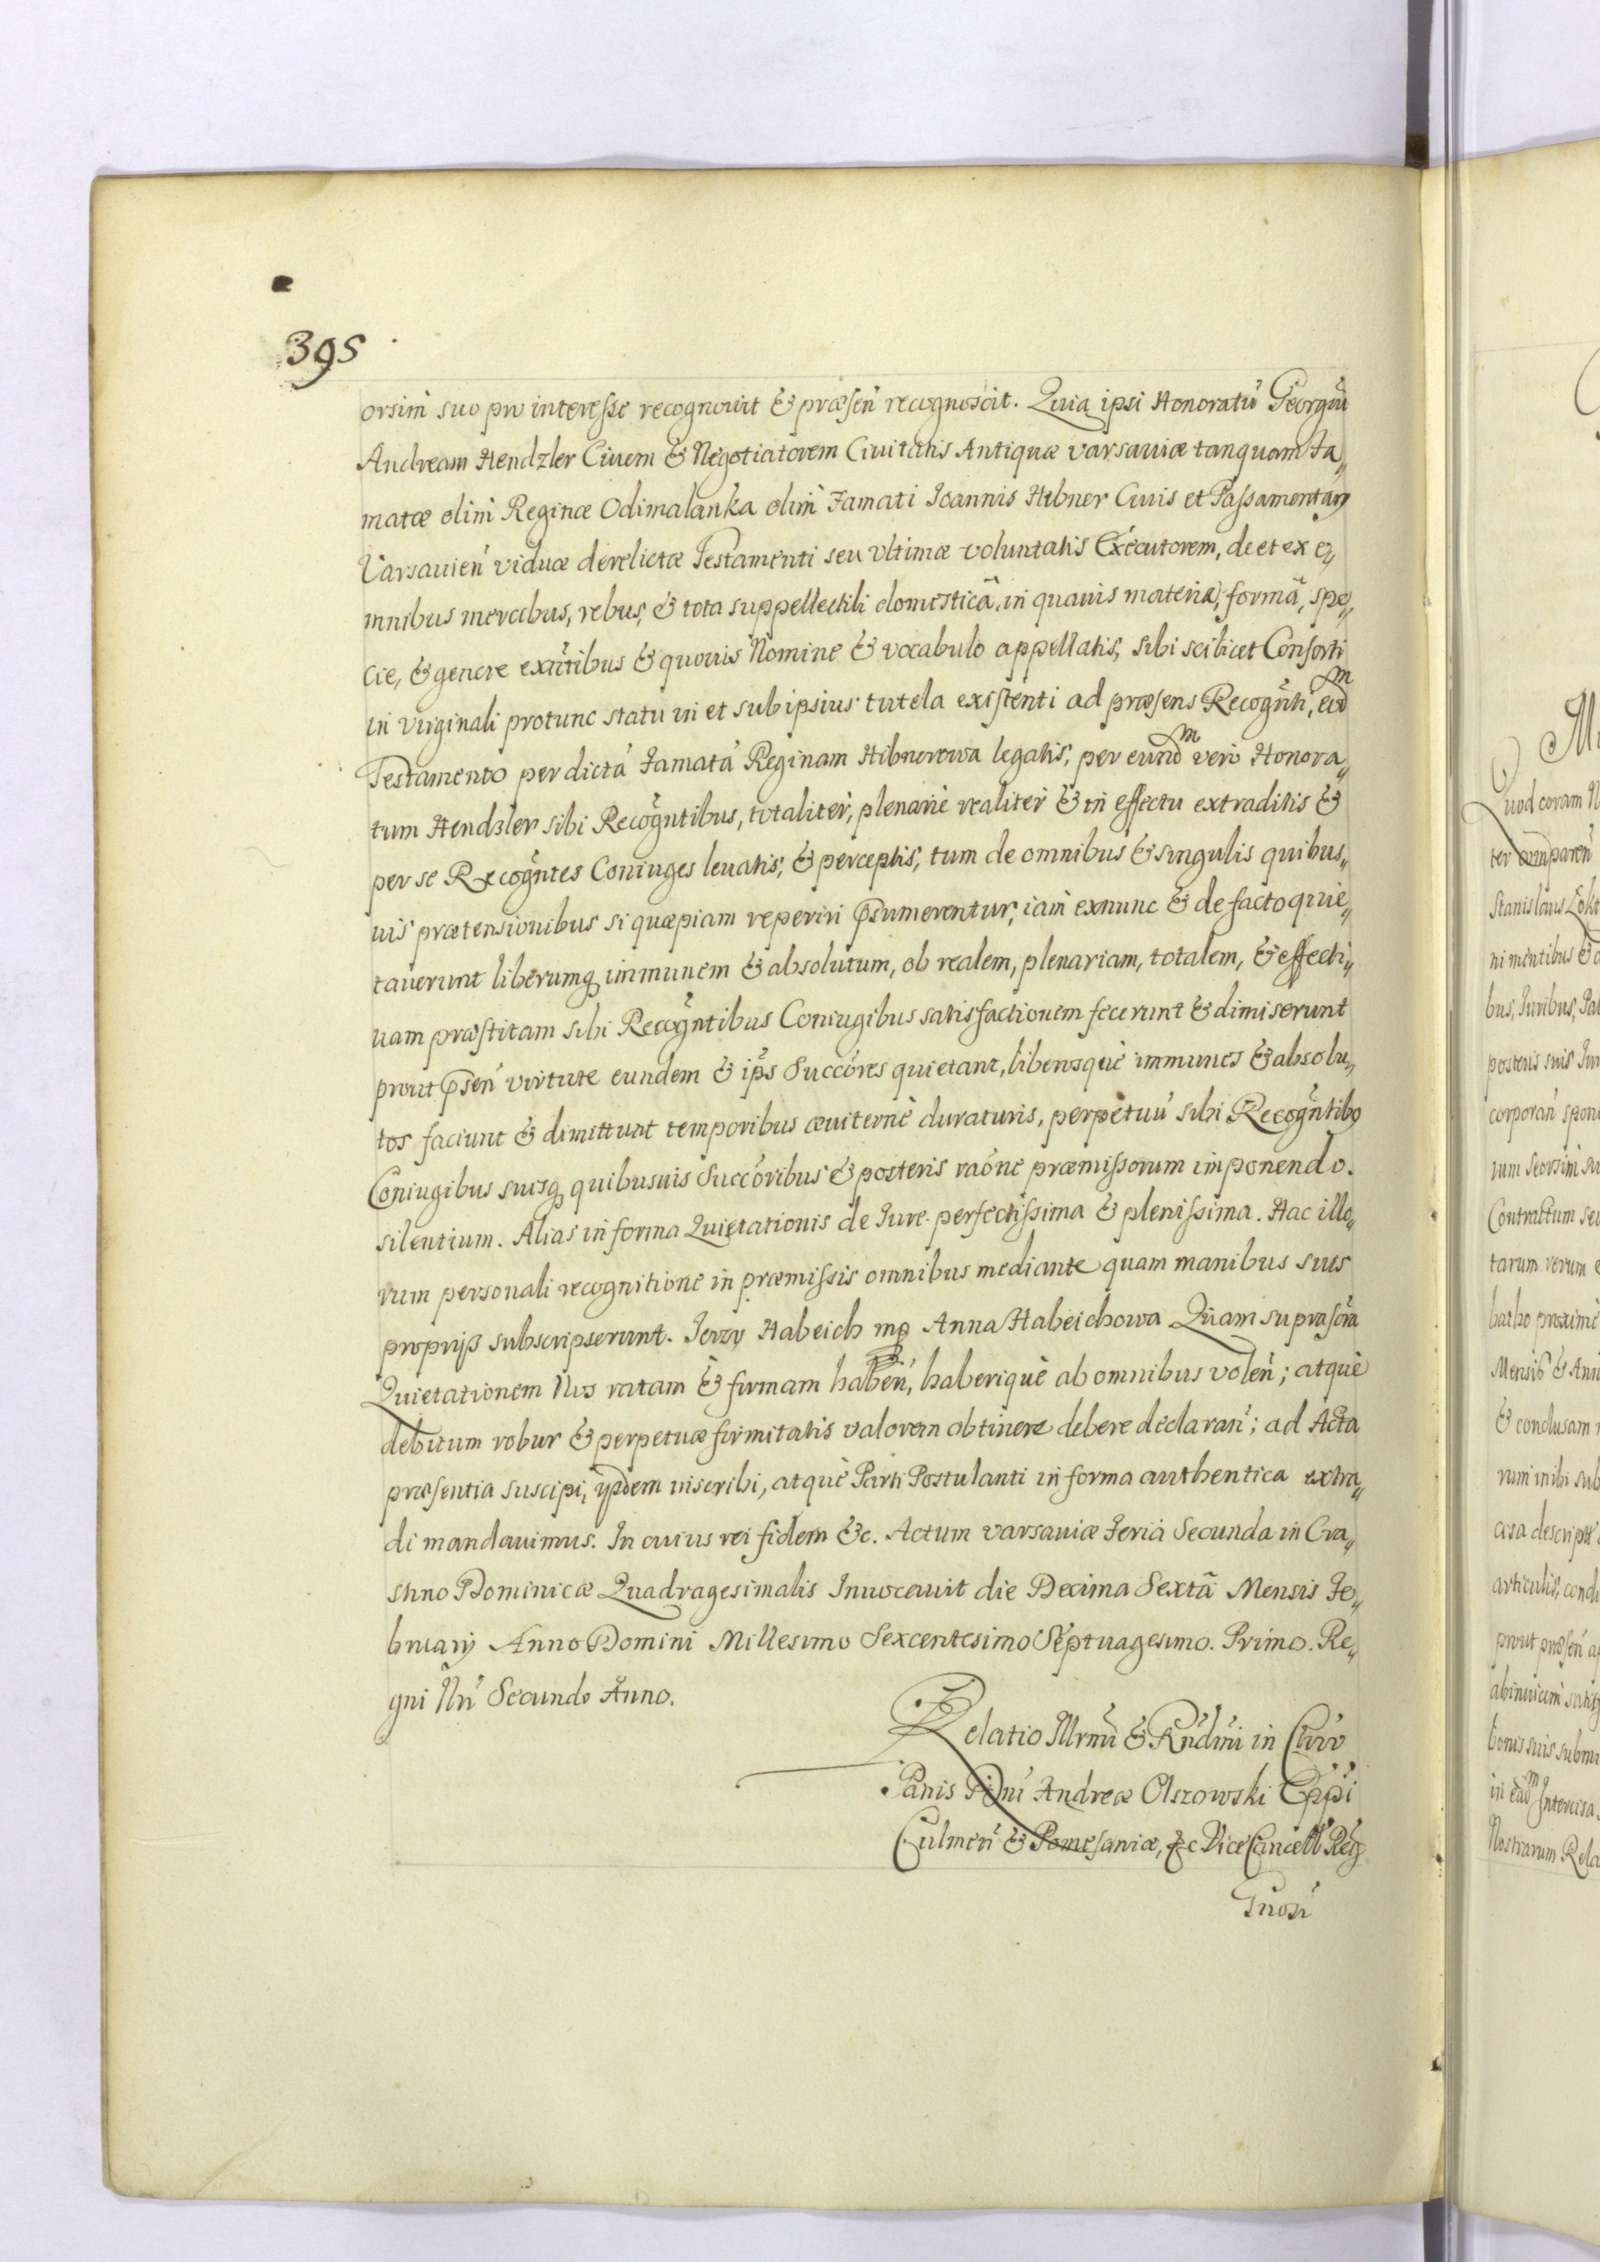 395
orsim suo pro interesse recognovit & præsen recognoscit. Quia ipsi Honoratũ Georgiũ
Andream Hendzler Civem & Negotiatorem Civitatis Antiquæ varsaviæ tanquam Fa„
matæ olim Reginæ Odimalanka olim Famati Joannis Hibner Civis et Passamentary
Varsavien viduæ derelictæ Testamenti seu vltimæ voluntatis Executorem, de et ex o„
mnibus mercibus, rebus, & tota suppellectili domesticâ, in quavis materiâ, formâ, spe„
cie, & genere exñtibus & quovis Nomine & vocabulo appellatis, sibi scilicet Consorti
in virginali protunc statu ui et sub ipsius tutela existenti ad præsens Recognti, eodm
Testamento per dictã Famatã Reginam Hibnerowa legatis, per eundm vero Honora„
tum Hendzler sibi Recogntibus, totaliter, plenarie realiter & in effectu extraditis &
per se Recogntes Coniuges levatis, & perceptis, tum de omnibus & singulis quibus„
uis prætensionibus si quæpiam reperiri p̃sumerentur, iam exnunc & de facto quie„
taverunt liberumq immunem & absolutum, ob realem, plenariam, totalem, & effecti„
uam præstitam sibi Recogntibus Coniugibus satisfactionem fecerunt & dimiserunt
prout p̃sen virtute eundem & ip̃s Succ̃ores quietant, liberosquè immunes & absolu„
tos faciunt & dimittunt temporibus æviternè duraturis, perpetuũ sibi Recogntibq
Coniugibus suisq quibusuis Succ̃oribus & posteris raõne præmissorum imponendo.
silentium. Alias in forma Quietationis de Jure perfectissima & plenissima. Hac illo„
rum personali recognitione in præmissis omnibus mediante quam manibus suis
proprijs subscripserunt. Jerzy Habeich mp Anna Habeichowa Quam suprascr̃a
Quietationem Nos ratam & firmam haben, haberiquè ab omnibus volen; atquè
debitum robur & perpetuæ firmitatis valorem obtinere debere declaran; ad Acta
præsentia suscipi, ijsdem inscribi, atquè Parti Postulanti in forma authentica extra„
di mandavimus. In cuius rei fidem &c. Actum varsaviæ Feria Secunda in Cra„
stino Dominicæ Quadragesimalis Invocavit die Decima Sextâ Mensis Fe„
bruarij Anno Domini Millesimo Sexcentesimo Septuagesimo. Primo. Re„
gni Nri Secundo Anno.
Relatio Illrmi & Rndmi in Chro
Patris Dni Andreæ Olszowski Eppi
Culmen & Pomesaniæ, &c Vice Cancell Reg